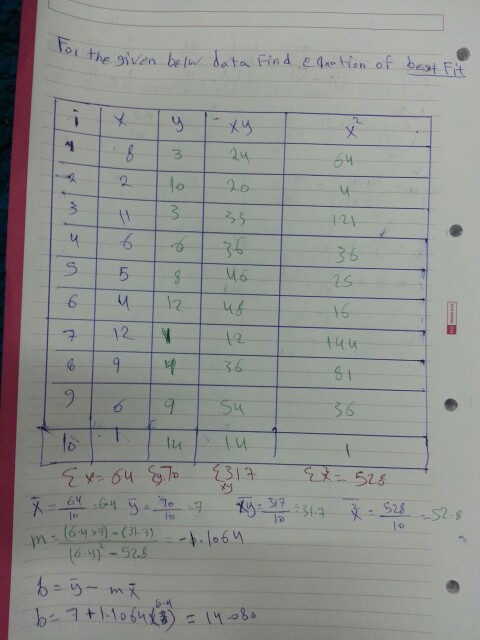 For the given belw data Find equation of best Fit
i x y xy x²
1 8 3 24 64
2 2 10 20 4
3 11 3 33 121
4 6 6 36 36
5 5 8 40 25
6 4 12 48 16
7 12 1 12 144
8 9 4 36 81
9 6 9 54 36
10 1 14 14 1
Σx = 64 Σy 70 Σxy 317 Σx² = 528
x̄ = 64/10 = 6.4 ȳ = 70/10 = 7 x̄ȳ = 317/10 = 31.7 x̄² = 528/10 = 52.8
m = (6.4×7) - (31.7) / (6.4)² - 52.8 = -1.1064
b = ȳ - m x̄
b = 7 + 1.1064 (6.4) = 14.080